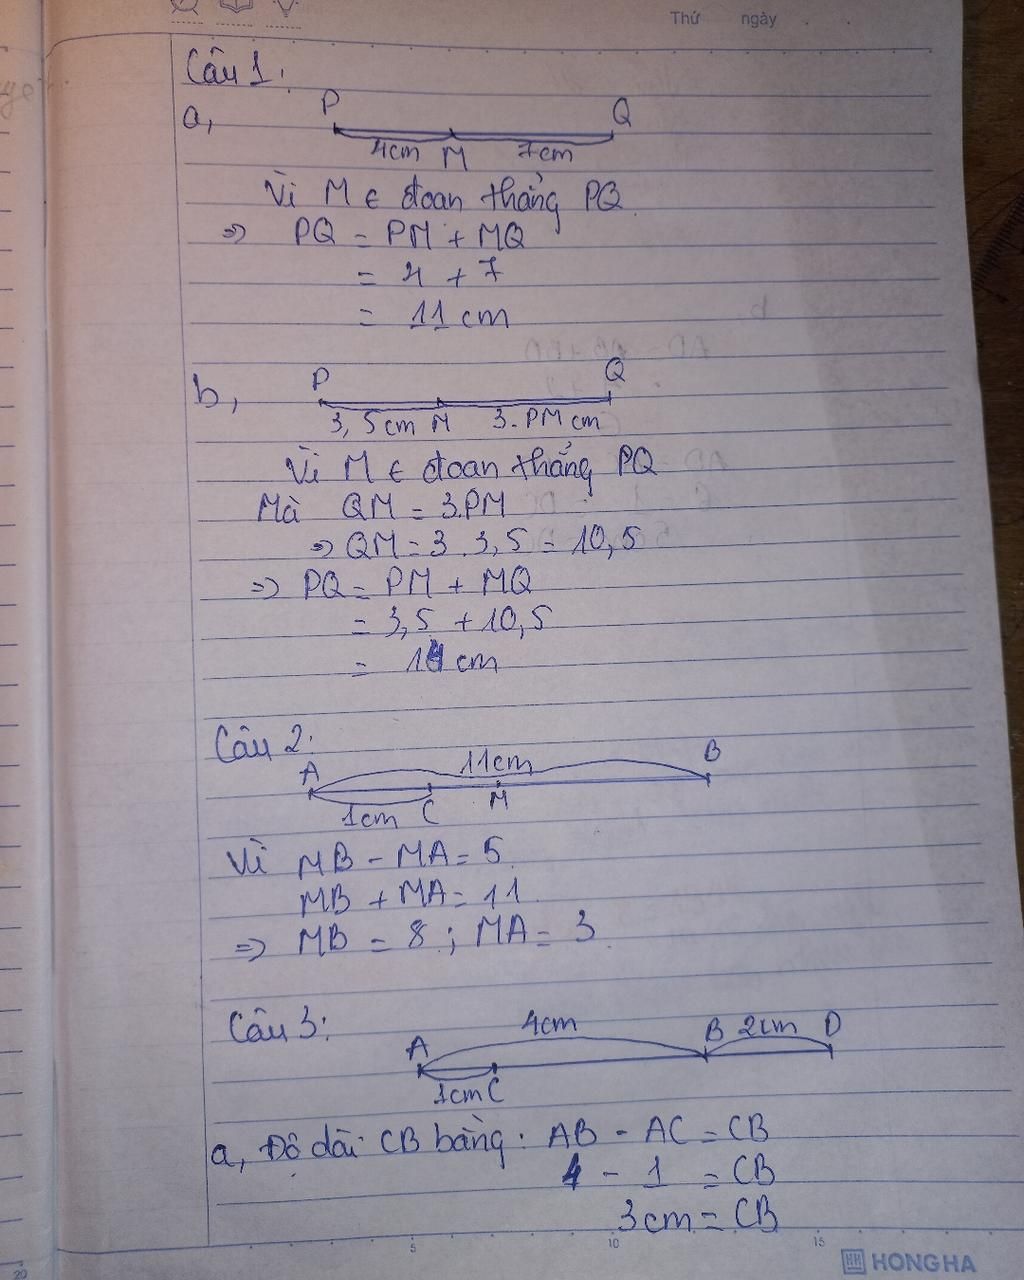 Thứ ngày
Câu 1:
a,
P Q
4cm M 7cm
Vì M ∈ đoan thẳng PQ
=> PQ = PM + MQ
= 4 + 7
= 11 cm
b,
P Q
3,5cm M 3.PM cm
Vì M ∈ đoan thẳng PQ
Mà QM = 3.PM
=> QM = 3 . 3,5 = 10,5
=> PQ = PM + MQ
= 3,5 + 10,5
= 14 cm
Câu 2:
A 11cm B
1cm C M
Vì MB - MA = 5
MB + MA = 11
=> MB = 8 ; MA = 3
Câu 3:
A 4cm B 2cm D
1cm C
a, Độ dài CB bằng: AB - AC = CB
4 - 1 = CB
3cm = CB
5 10 15
20
HONG HA